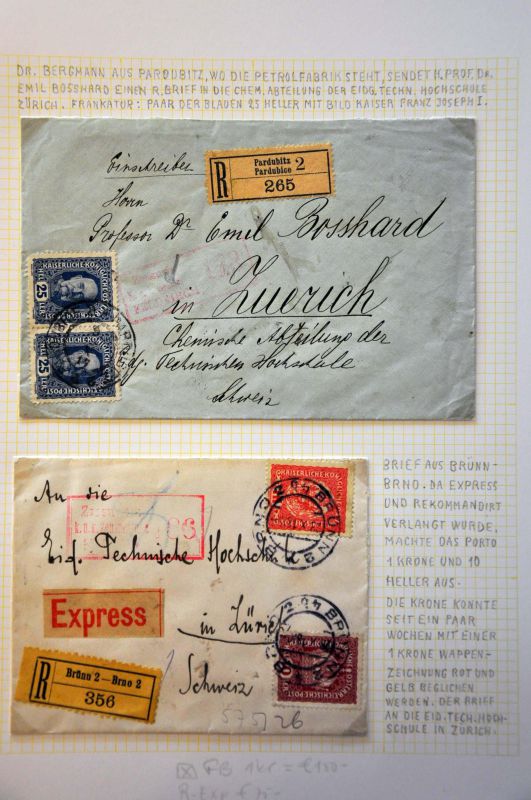 DR. BERGMANN AUS PARDUBITZ, WO DIE PETROLFABRIK STEHT, SENDET H. PROF. DR.
EMIL BOSSHARD EINEN R. BRIEF IN DIE CHEM. ABTEILUNG DER EIDG. TECHN. HOCHSCHULE
ZÜRICH. FRANKATUR: PAAR DER BLAUEN 25 HELLER MIT BILD KAISER FRANZ JOSEPH I.
Einschreiben
R
Pardubitz 2
Pardubice
265
Herrn
Professor Dr Emil Bosshard
in Zuerich
Chemische Abteilung der
Eidg. Technischen Hochschule
Schweiz
25
25
BRIEF AUS BRÜNN-
BRNO. DA EXPRESS
UND REKOMMANDIRT
VERLANGT WURDE,
MACHTE DAS PORTO
1 KRONE UND 10
HELLER AUS.
DIE KRONE KONNTE
SEIT EIN PAAR
WOCHEN MIT EINER
1 KRONE WAPPEN-
ZEICHNUNG ROT UND
GELB BEGLICHEN
WERDEN. DER BRIEF
AN DIE EID. TECH. HOCH-
SCHULE IN ZÜRICH.
An die
Eid. Technische Hochsch
in Zürich
Schweiz
BRÜNN 2
Express
R
Brünn 2 — Brno 2
356
FB 1kr = € 150-